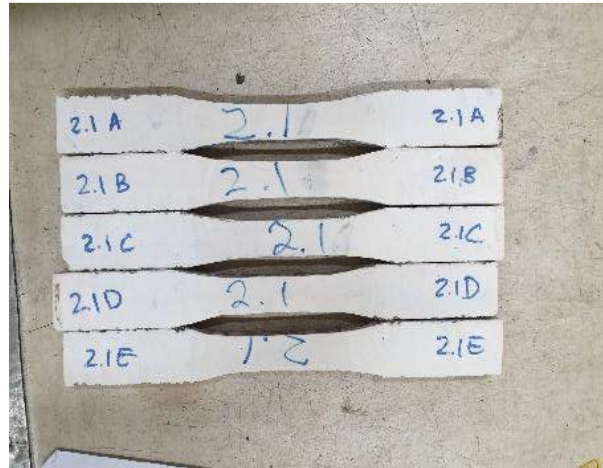 2.1 A 2.1 2.1 A
2.1 B 2.1 2.1 B
2.1 C 2.1 2.1 C
2.1 D 2.1 2.1 D
2.1 E 2.1 2.1 E